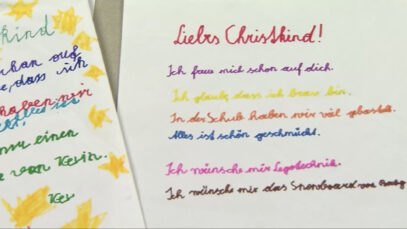 kind
auf
, dass ich
haben wir
einen
von Kevin.
Kev
Liebes Christkind!
Ich freue mich schon auf dich.
Ich glaube, dass ich brav bin.
In der Schule haben wir viel gebastelt.
Alles ist schön geschmückt.
Ich wünsche mir Legotechnik.
Ich wünsche mir das Snowboard von